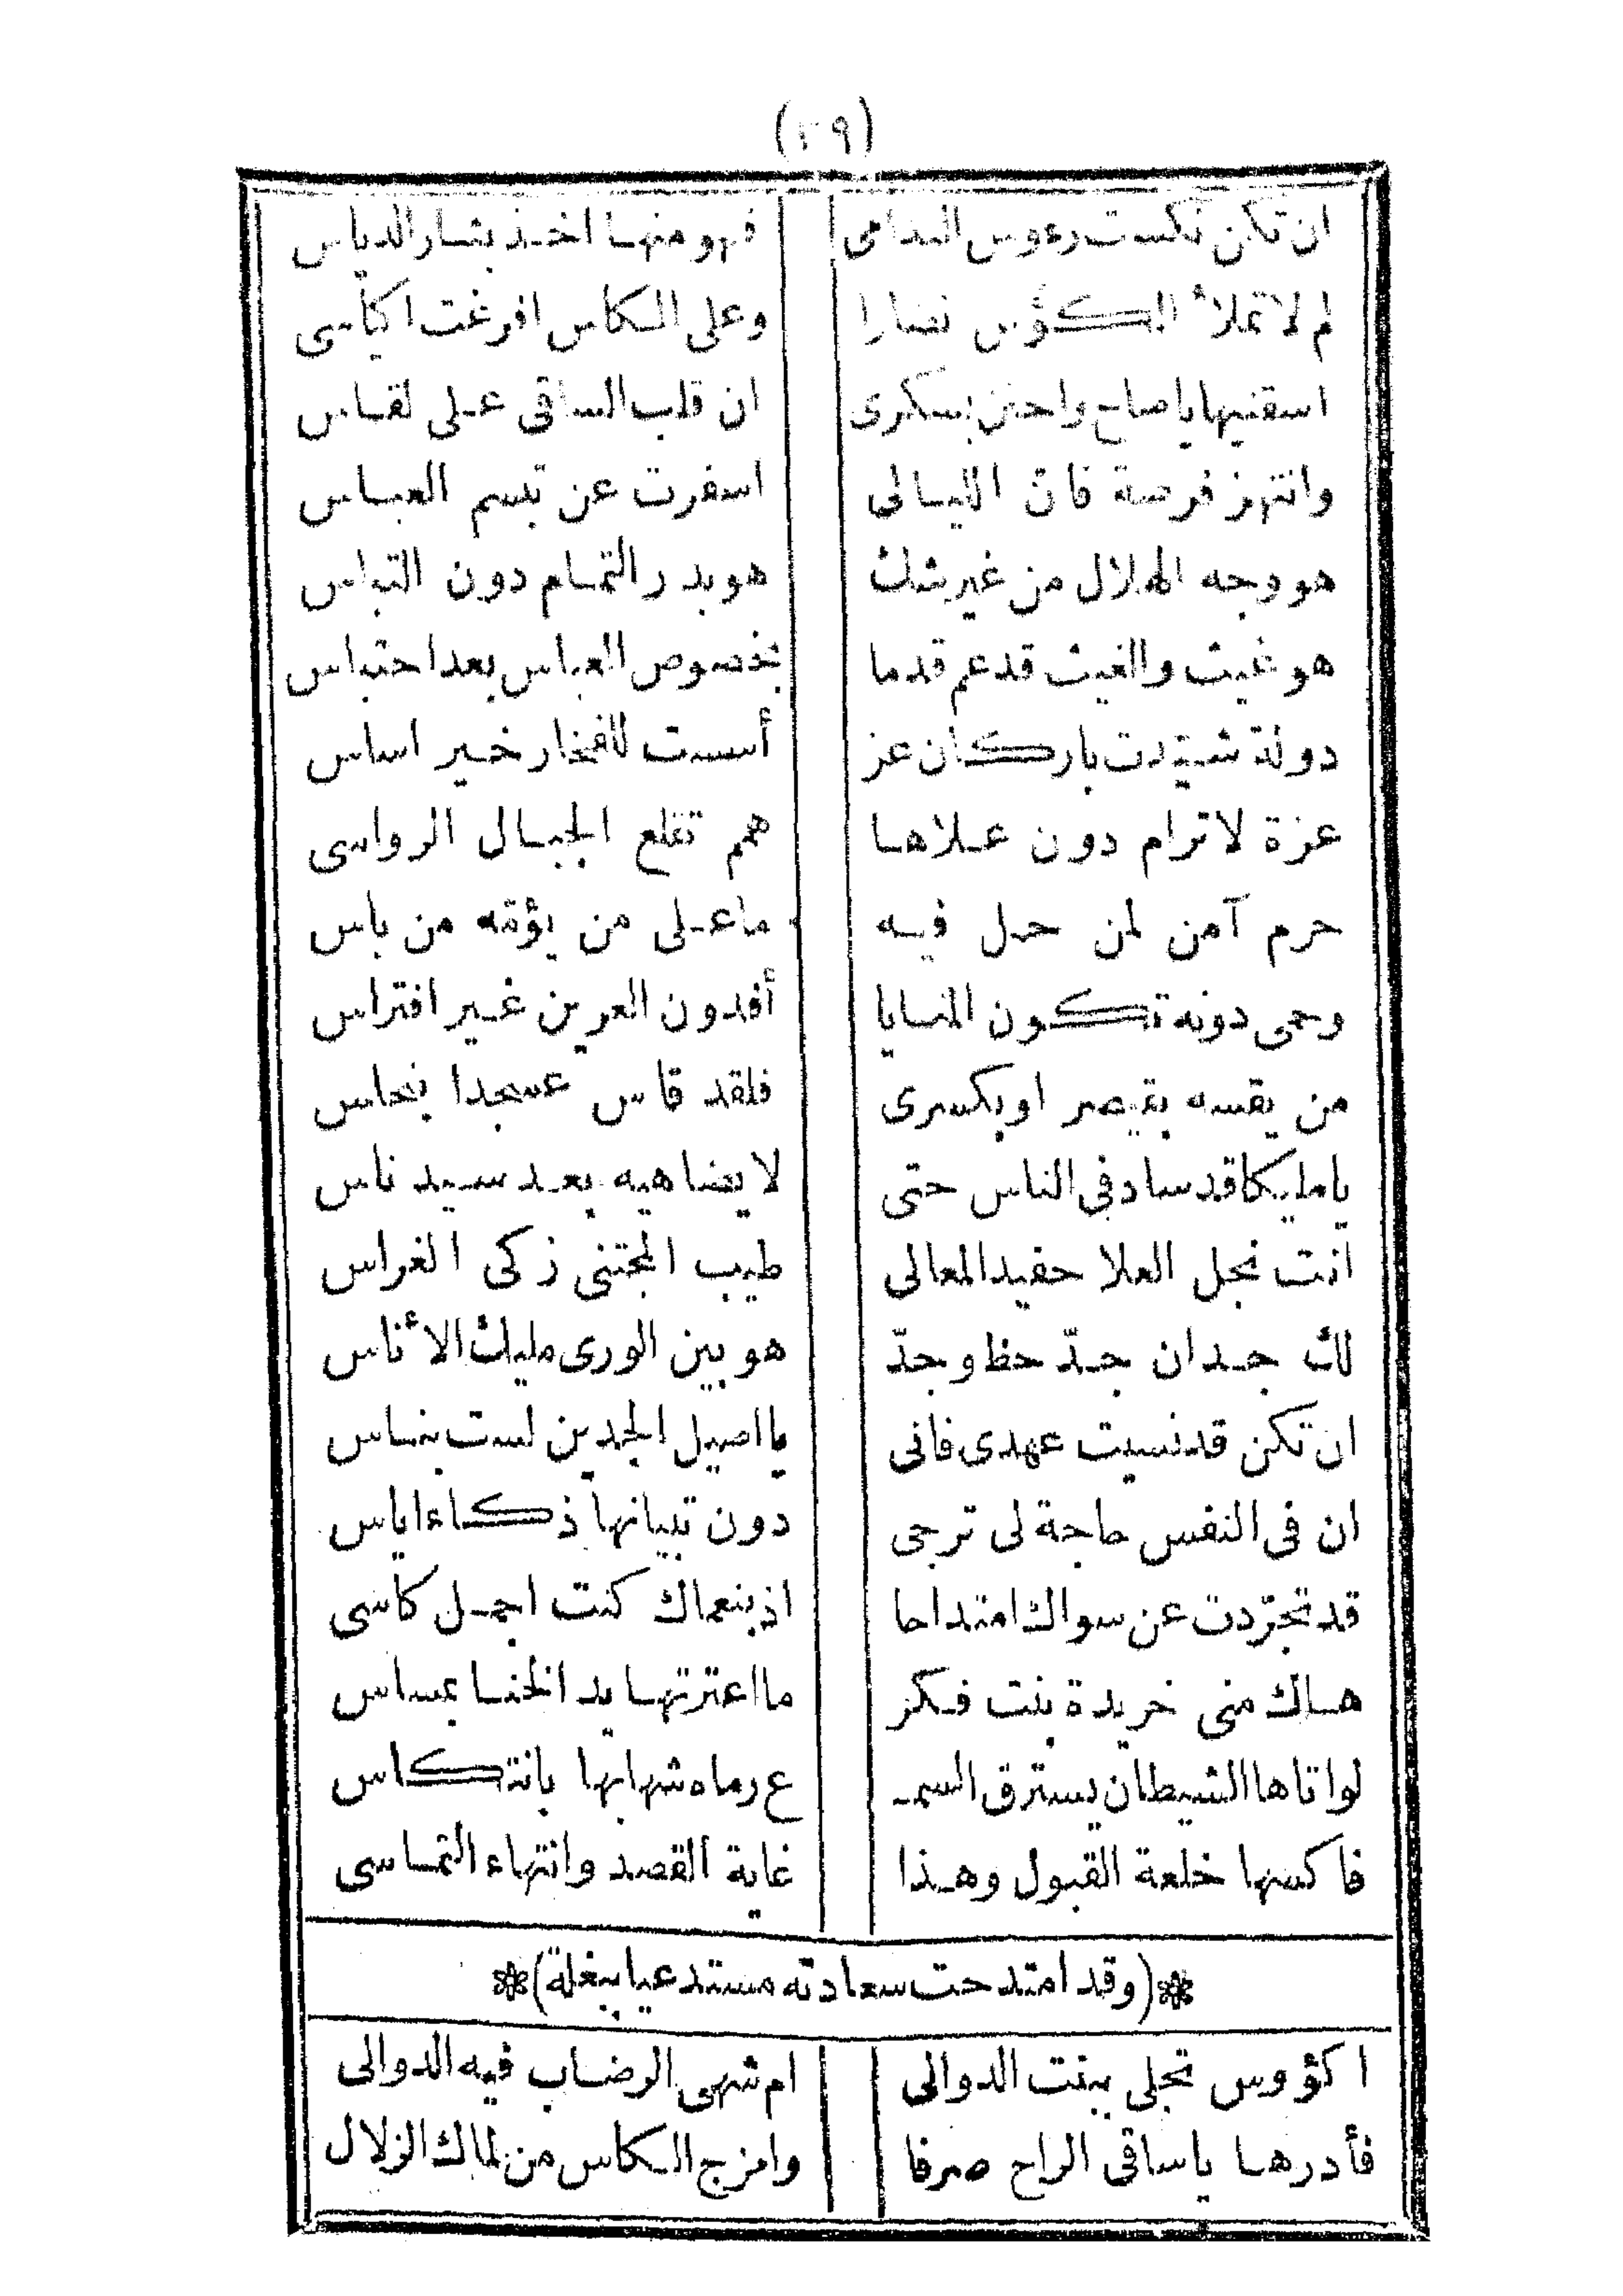 (٢٩)
ان تكن نكست رءوس الندامى فهو منها اخذ بثار الدياس
لم لا تملأ الكؤس نضارا وعلى الكاس افرغت اكياسى
اسقنيها ياصاح واحتن بسكرى ان قلب الساقى على لقاس
وانتهز فرصة فان الليالى اسفرت عن تبسم العباس
هو وجه الهلال من غير شك هو بدر التمام دون التباس
هو غيث والغيث قد عم قدما بخصوص العباس بعد احتباس
دولة شيدت باركان عز أسست للفخار خير اساس
عزة لا ترام دون علاها همم تقلع الجبال الرواسى
حرم آمن لمن حل فيه ما على من يؤمّه من باس
وحمى دونه تكون المنايا أفدون العرين غير افتراس
من يقسه بقيصر او بكسرى فلقد قاس عسجدا بنحاس
يامليكا قد ساد فى الناس حتى لا يضاهيه بعد سيد ناس
انت نجل العلا حفيد المعالى طيب المجتنى زكى الغراس
لك جدان جدّ حظ وجدّ هو بين الورى مليك الأناس
ان تكن قد نسيت عهدى فانى يا اصيل الجدين لست بناس
ان فى النفس حاجة لى ترجى دون تبيانها ذكاء اياس
قد تجرّدت عن سواك امتداحا اذ بنعماك كنت اجمل كاسى
هاك منى خريدة بنت فكر ما اعترتها يد الخنا بمساس
لو اتاها الشيطان يسترق السمـ ع رماه شهابها بانتكاس
فاكسها خلعة القبول وهذا غاية القصد وانتهاء التماسى
❊(وقد امتدحت سعادته مستدعيا ببغلة)❊
اكؤوس تجلى ببنت الدوالى ام شهى الرضاب فيه الدوالى
فأدرها ياساقى الراح صرفا وامزج الكاس من لماك الزلال